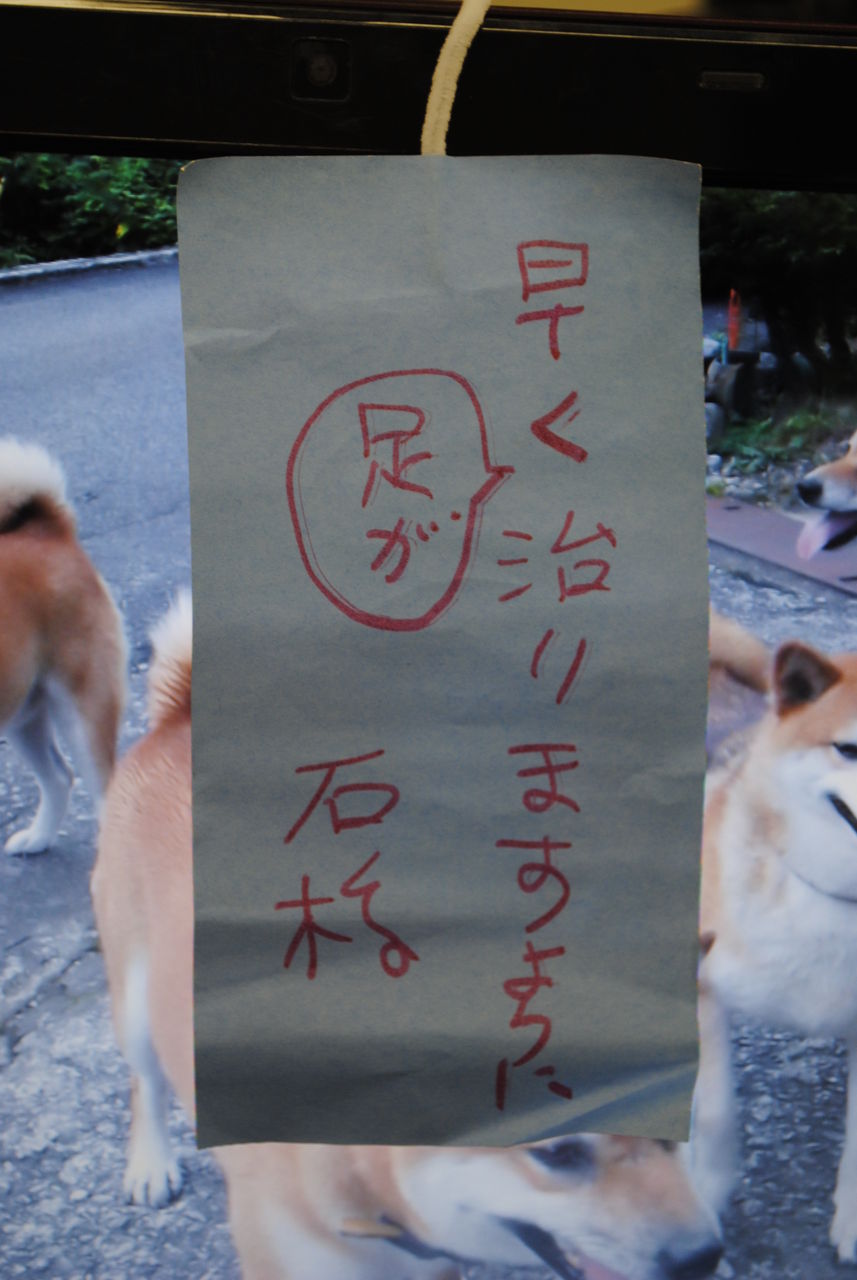 早く治りますように
足が
石松